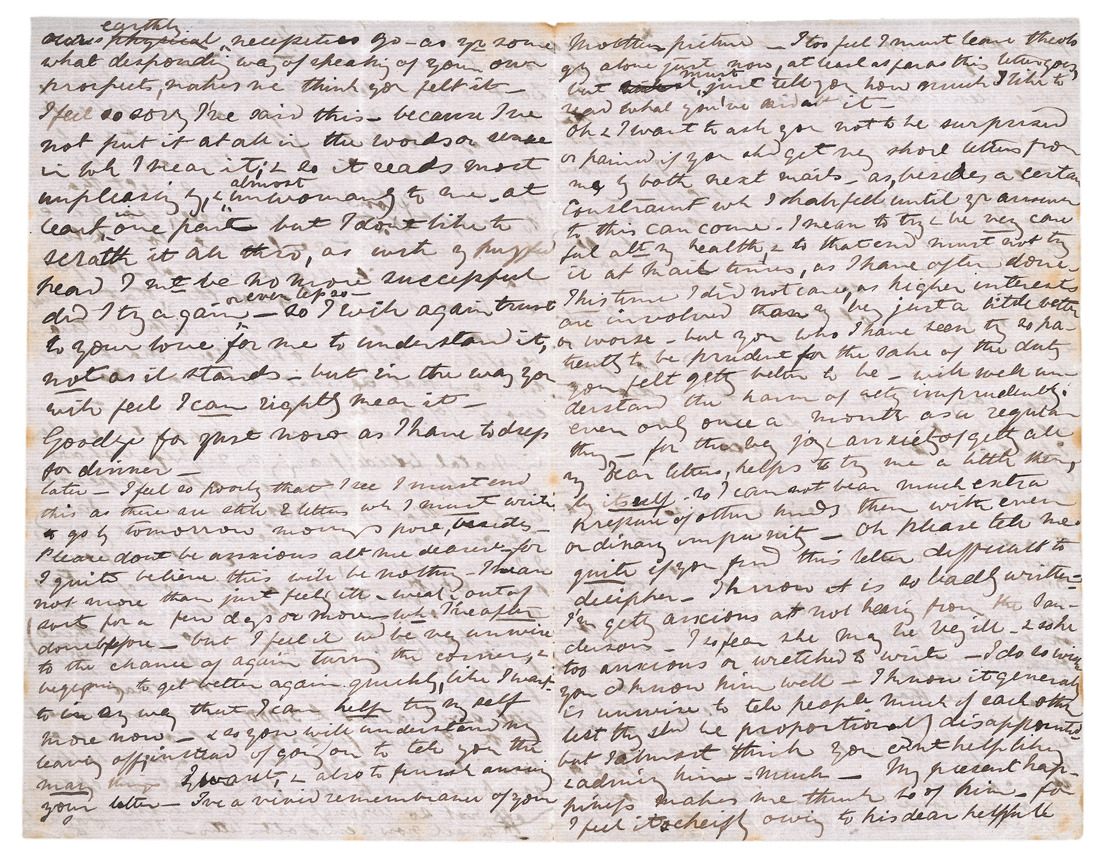 earthly
ours physical necessities go - as yr some
what desponding way of speaking of your own
prospect, makes me think you felt it -
I feel so sorry I've said this - because I've
not put it at all in the words or sense
in wh I mean it; & so it reads most
almost
unpleasingly, & unwomanly to me - at
in
least one part but I don't like to
scratch it all thro, as with my
head I mt be no more successful
or even less so -
did I try again - so I will again trust
to your love for me to understand it,
not as it stands - but in the way you
will feel I can rightly mean it -
Goodbye for just now as I have to dress
for dinner -
later - I feel so poorly that I see I must end
this as there are still 2 letters wh I must write
to go by tomorrow morning's post, besides -
Please dont be anxious abt me dearest - for
I quite believe this will be nothing - I mean
not more than just feeling ill - weak & out of
sort for a few days or more - wh I've often
done before - but I feel it wd be very unwise
to the chance of again turning the corner, &
beginning to get better again quickly, like I want
to in any way that I can help try myself
more now - & so you will understand my
leaving off, instead of going on to tell you the
many things I want, & also to finish answering
your letter - I've a vivid remembrance of your
Mother's picture - I too feel I must leave theolo
gy alone just now, at least as far as this letter goes,
must
but just tell you how much I like to
read what you've said abt it -
Oh & I want to ask you not to be surprised
or pained if you shd get very short letters from
me by both next mails - as, besides a certain
constraint wh I shall feel until yr answer
to this can come - I mean to try & be very care
ful abt my health, & to that end must not try
it at Mail times, as I have often done.
This time I did not care, as higher interests
are involved than my being just a little better
or worse - but you who I have seen try so pa-
tiently to be prudent for the sake of the duty
you felt getting better to be - will well un-
derstand the harm of acting imprudently
even only once a month as a regular
thing - for the very joy & anxiety of getting all
my dear letters, helps to try me a little then,
by itself - so I cannot bear much extra
pressure of other kinds then with even
ordinary impunity - Oh please tell me
quite if you find this letter difficult to
decipher - I know it is so badly written -
I'm getting anxious at not hearing from the San-
dersons - I so fear she may be very ill - & so he
too anxious or wretched to write - I do so wish
you cd know him well - I know it generally
is unwise to tell people much of each other
lest they shd be proportionally disappointed
but I almost think you cdnt help liking
& admiring him - much - My present hap-
piness makes me think so of him - for
I feel it so chiefly owing to his dear helpful